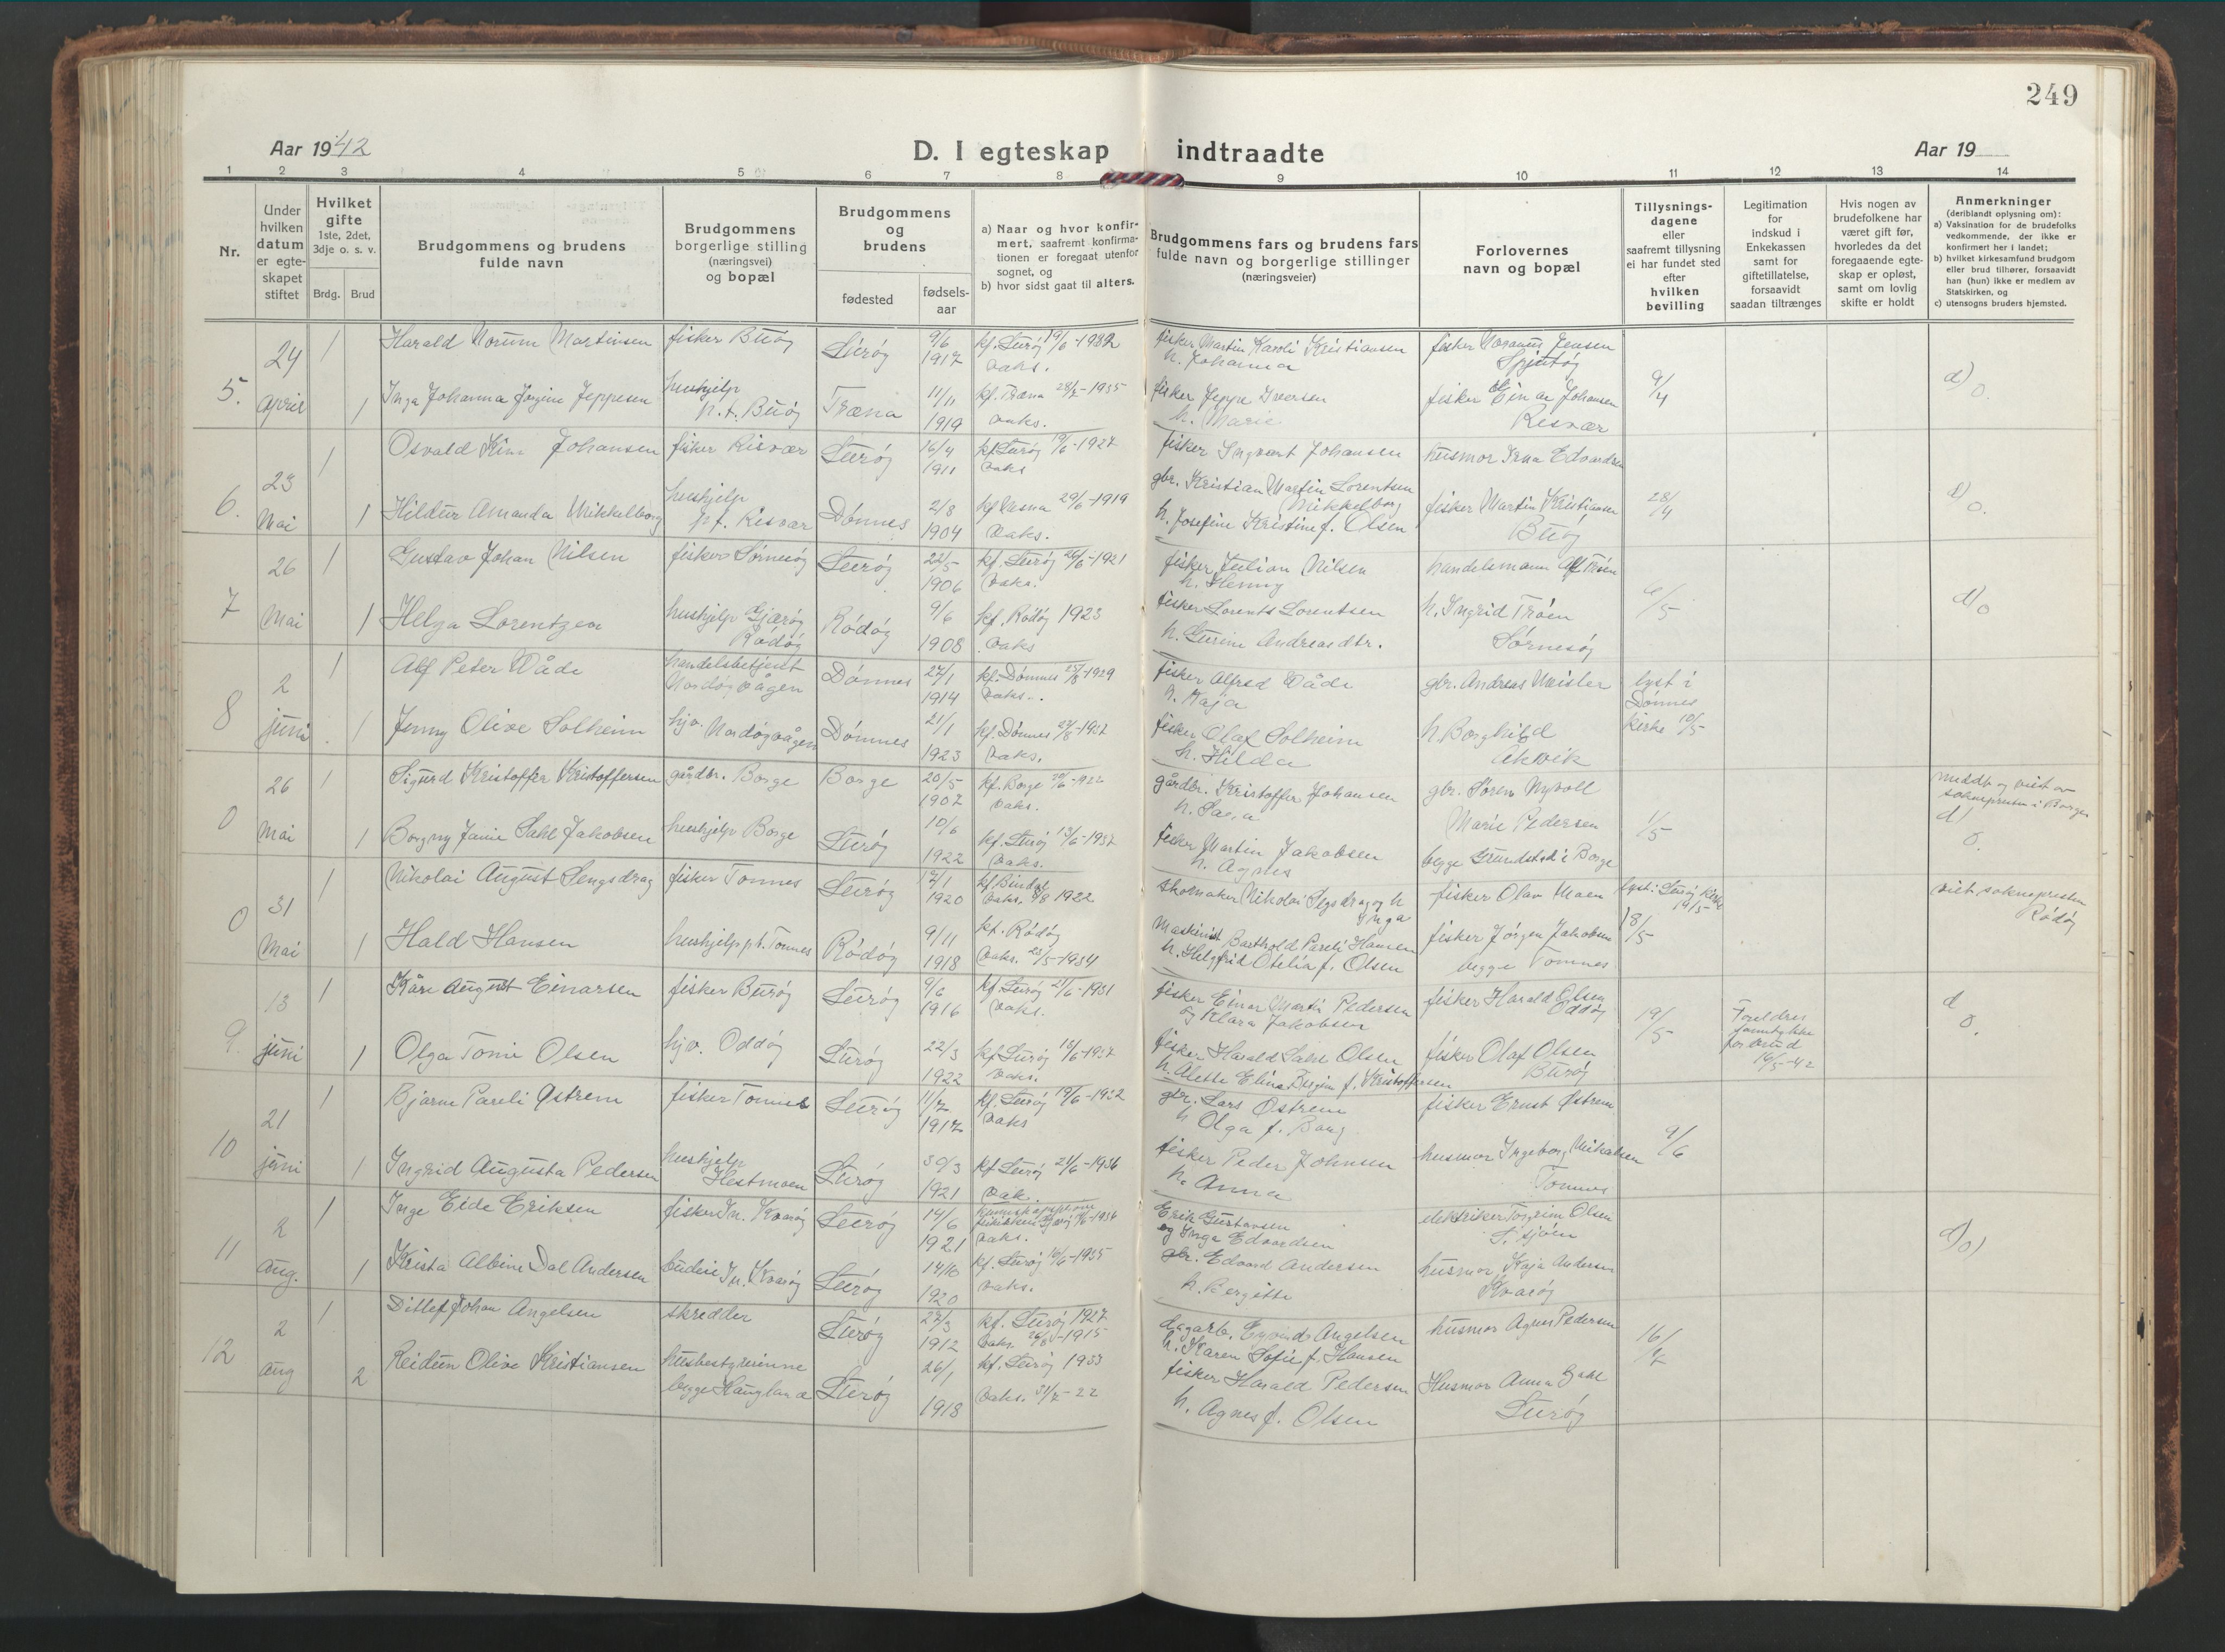 249
Aar 1942
D. I egteskap indtraadte
Aar 19
1 2 3 4 5 6 7 8 9 10 11 12 13 14
Nr.
Under hvilken datum er egteskapet stiftet
Hvilket gifte
1ste, 2det, 3dje o. s. v.
Brdg. Brud
Brudgommens og brudens fulde navn
Brudgommens borgerlige stilling (næringsvei) og bopæl
Brudgommens og brudens
fødested
fødsels-aar
a) Naar og hvor konfirmert, saafremt konfirmationen er foregaat utenfor sognet, og
b) hvor sidst gaat til alters.
Brudgommens fars og brudens fars fulde navn og borgerlige stillinger (næringsveier)
Forlovernes navn og bopæl
Tillysnings-dagene eller saafremt tillysning ei har fundet sted efter hvilken bevilling
Legitimation for indskud i Enkekassen samt for giftetillatelse, forsaavidt saadan tiltrænges
Hvis nogen av brudefolkene har været gift før, hvorledes da det foregaaende egteskap er opløst, samt om lovlig skifte er holdt
Anmerkninger
(deriblandt oplysning om):
a) Vaksination for de brudefolks vedkommende, der ikke er konfirmert her i landet;
b) hvilket kirkesamfund brudgom eller brud tilhører, forsaavidt han (hun) ikke er medlem av Statskirken, og
c) utensogns bruders hjemsted.
5. 24 april
1 Harald Norum Martinsen fisker Buøy Lurøy 9/6 1917 kf. Lurøy 19/6-1932 vaks. fisker Martin Karoli Kristiansen h. Johanna fisker Jensen
1 Inga Johanna Jørgine Jeppesen hushjelp p.t. Buøy Træna 11/11 1919 kf. Træna 28/7-1935 vaks. fisker Jeppe Iversen h. Marie fisker Einar Johansen Risvær 9/4 d) 0.
6. 23 Mai
1 Osvald Kim Johansen fisker Risvær Lurøy 16/4 1911 kf Lurøy 19/6-1927 vaks fisker Ingvart Johansen husmor Edvardsen
1 Hildur Amanda Mikkelborg hushjelp p.t. Risvær Dønnes 2/8 1904 kf Vasna 29/6-1919 vaks. gbr. Kristian Martin Lorentsen Mikkelborg h. Josefine Kristine f. Olsen fisker Martin Kristiansen Buøy 28/4 d) 0.
7 26 Mai
1 Gustav Johan Nilsen fisker Sørnesøy Lurøy 22/5 1906 kf. Lurøy 26/6-1921 vaks. fisker Julian Nilsen h. Henny handelsmann Alf Trøen
1 Helga Lorentzen hushjelp Gjærøy Rødøy Rødøy 9/6 1908 kf. Rødøy 1923 vaks fisker Lorents Lorentsen h. Gurine Andreasdtr. h. Ingrid Trøen Sørnesøy d) 0
8 2 juni
1 Alf Peter Våde handelsbetjent Nordøyvågen Dønnes 27/1 1914 kf. Dønnes 25/8-1929 vaks. fisker Alfred Våde h. Kaja gbr. Andreas Meisler lyst i Dønnes kirke 10/5
1 Jenny Olive Solheim hjv. Nordøyvågen Dønnes 21/1 1923 kf. Dønnes vaks. fisker Olaf Solheim h. Hilda h. Borghild Akvik
0 26 Mai
1 Sigurd Kristoffer Kristoffersen gårdbr. Borge Borge 20/5 1907 kf. Borge 20/6-1922 vaks. gårdbr. Kristoffer Johansen gbr. Søren Nyvoll
1 Borgny Janie Sahl Jakobsen hushjelp Borge Lurøy 10/6 1922 kf. Lurøy 13/6-1937 vaks. fisker Martin Jakobsen h. Agnes Marie Pedersen begge Grundstad i Borge 1/5 meddt. og viet av soknepresten i Borge d) 0.
0 31 Mai
1 Nikolai August Sengsdrag fisker Tonnes Lurøy 17/1 1920 kf Bindal vaks. 1922 skomaker Nikolai Segsdrag og h Inga fisker Olav Moen lyst i Lurøy kirke viet soknepresten Rødøy
1 Hald Hansen hushjelp p.t. Tonnes Rødøy 9/11 1918 kf. Rødøy vaks. 23/5-1934 Maskinist Barthold Pareli Hansen h. Helgfrid Otelia f. Olsen fisker Jørgen Jakobsen begge Tonnes 18/5
9. 13 juni
1 Kåre August Einarsen fisker Burøy Lurøy 9/6 1916 kf. Lurøy 21/6-1931 vaks. fisker Einar Martin Pedersen og Klara Jakobsen fisker Harald Olsen Oddøy 19/5 Foreldres samtykke for brud 16/5-42 d 0.
1 Olga Tomi Olsen hjv. Oddøy Lurøy 22/3 1922 kf. Lurøy vaks. fisker Harald Olsen h. Alette Elina f. Kristoffersen fisker Olaf Olsen Burøy
10 21 juni
1 Bjarne Pareli Østrem fisker Tonnes Lurøy 11/7 1917 kf. Lurøy 19/6-1932 vaks gbr. Lars Østrem h Olga f. Bang fisker Ernst Østrem 9/6
1 Ingrid Augusta Pedersen hushjelp Hestmoen Lurøy 30/3 1921 kf Lurøy 21/6-1936 vak. fisker Peder Johnsen h. Anna husmor Ingeborg Mikalsen Tonnes
11 2 aug.
1 Inge Eide Eriksen fisker In. Kvarøy Lurøy 14/6 1921 vaks. Erik Gustavsen og Inga Edvardsen elektriker Torgrim Olsen
1 Krista Albine Dal Andersen budeie In. Kvarøy Lurøy 14/10 1920 kf. Lurøy 16/6-1935 vaks. gbr. Edvard Andersen h. Bergitte husmor Kaja Andersen Kvarøy d) 0)
12 2 aug
1 Ditlef Johan Angelsen skredder Lurøy 27/3 1912 kf. Lurøy 1927 vaks. 26/8-1915 dagarb. Eyvind Angelsen h. Karen Sofie f. Hansen husmor Agnes Pedersen 16/7
2 Reidun Olive Kristiansen husbestyrerinne begge Haugland Lurøy 26/1 1918 kf. Lurøy 1933 vaks. 31/7-22 fisker Harald Pedersen h. Agnes f. Olsen Husmor Anna Dahl Lurøy